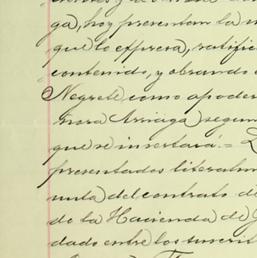 ga, hoy presentan la m
que lo espresa, ratific
contenido, y obrando
Negrete como apoder
ñora Arriaga segun
que se insertará.=
presentados literalm
nuta del contrato de
de la Hacienda de
dado entre los suscrit